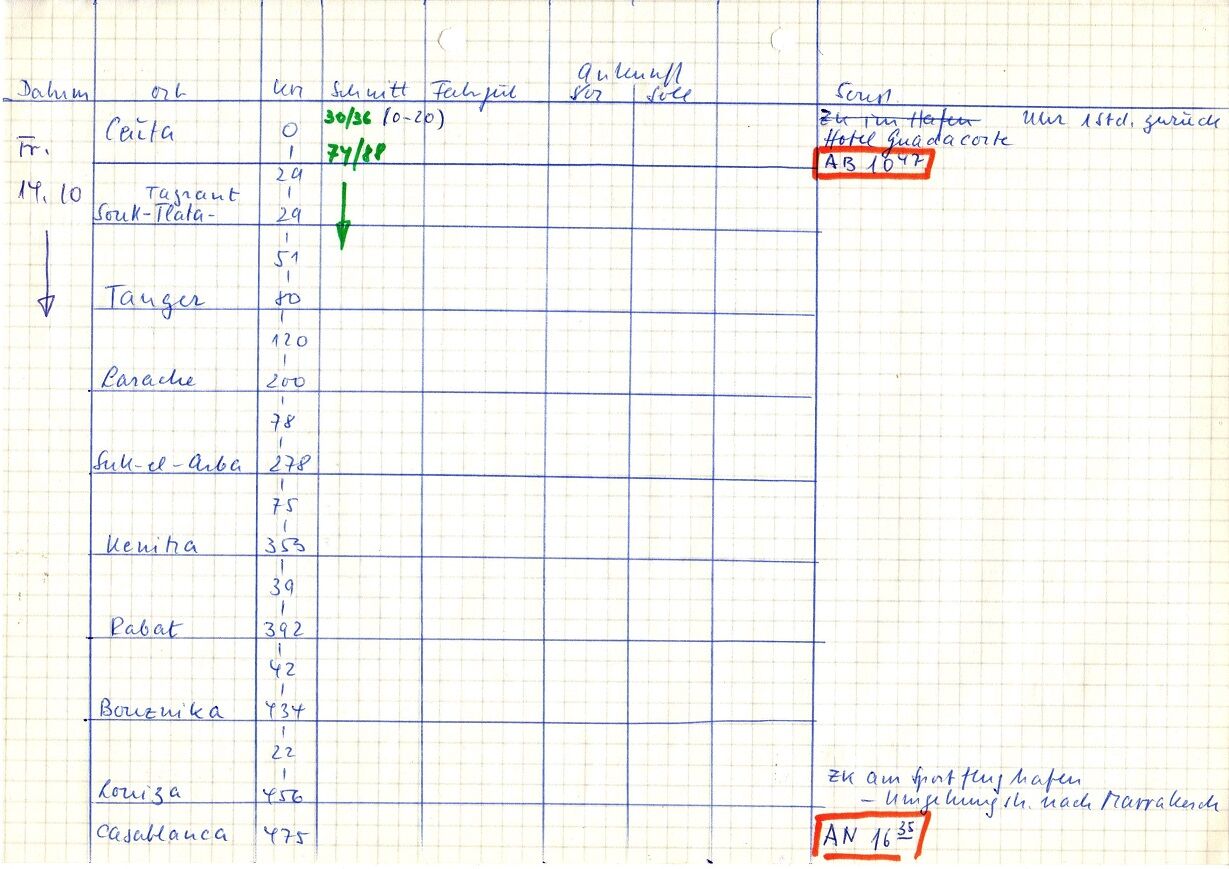 Ankunft
Datum Ort km Schnitt Fahrgut Vor Soll Sonst
Fr. Ceuta 0 30/36 (0-20) ZK im Hafen Uhr 1 Std. zurück
Hotel Guadacorte
74/88 AB 10 47
29
14.10 Tagrant
Souk-Tlata- 29
51
Tanger 80
120
Larache 200
78
Suk-el-Arba 278
75
Kenitra 353
39
Rabat 392
42
Bouznika 434
22
ZK am Sportflughafen
Louiza 456 - Umgehungstr. nach Marrakesch
Casablanca 475 AN 16 35